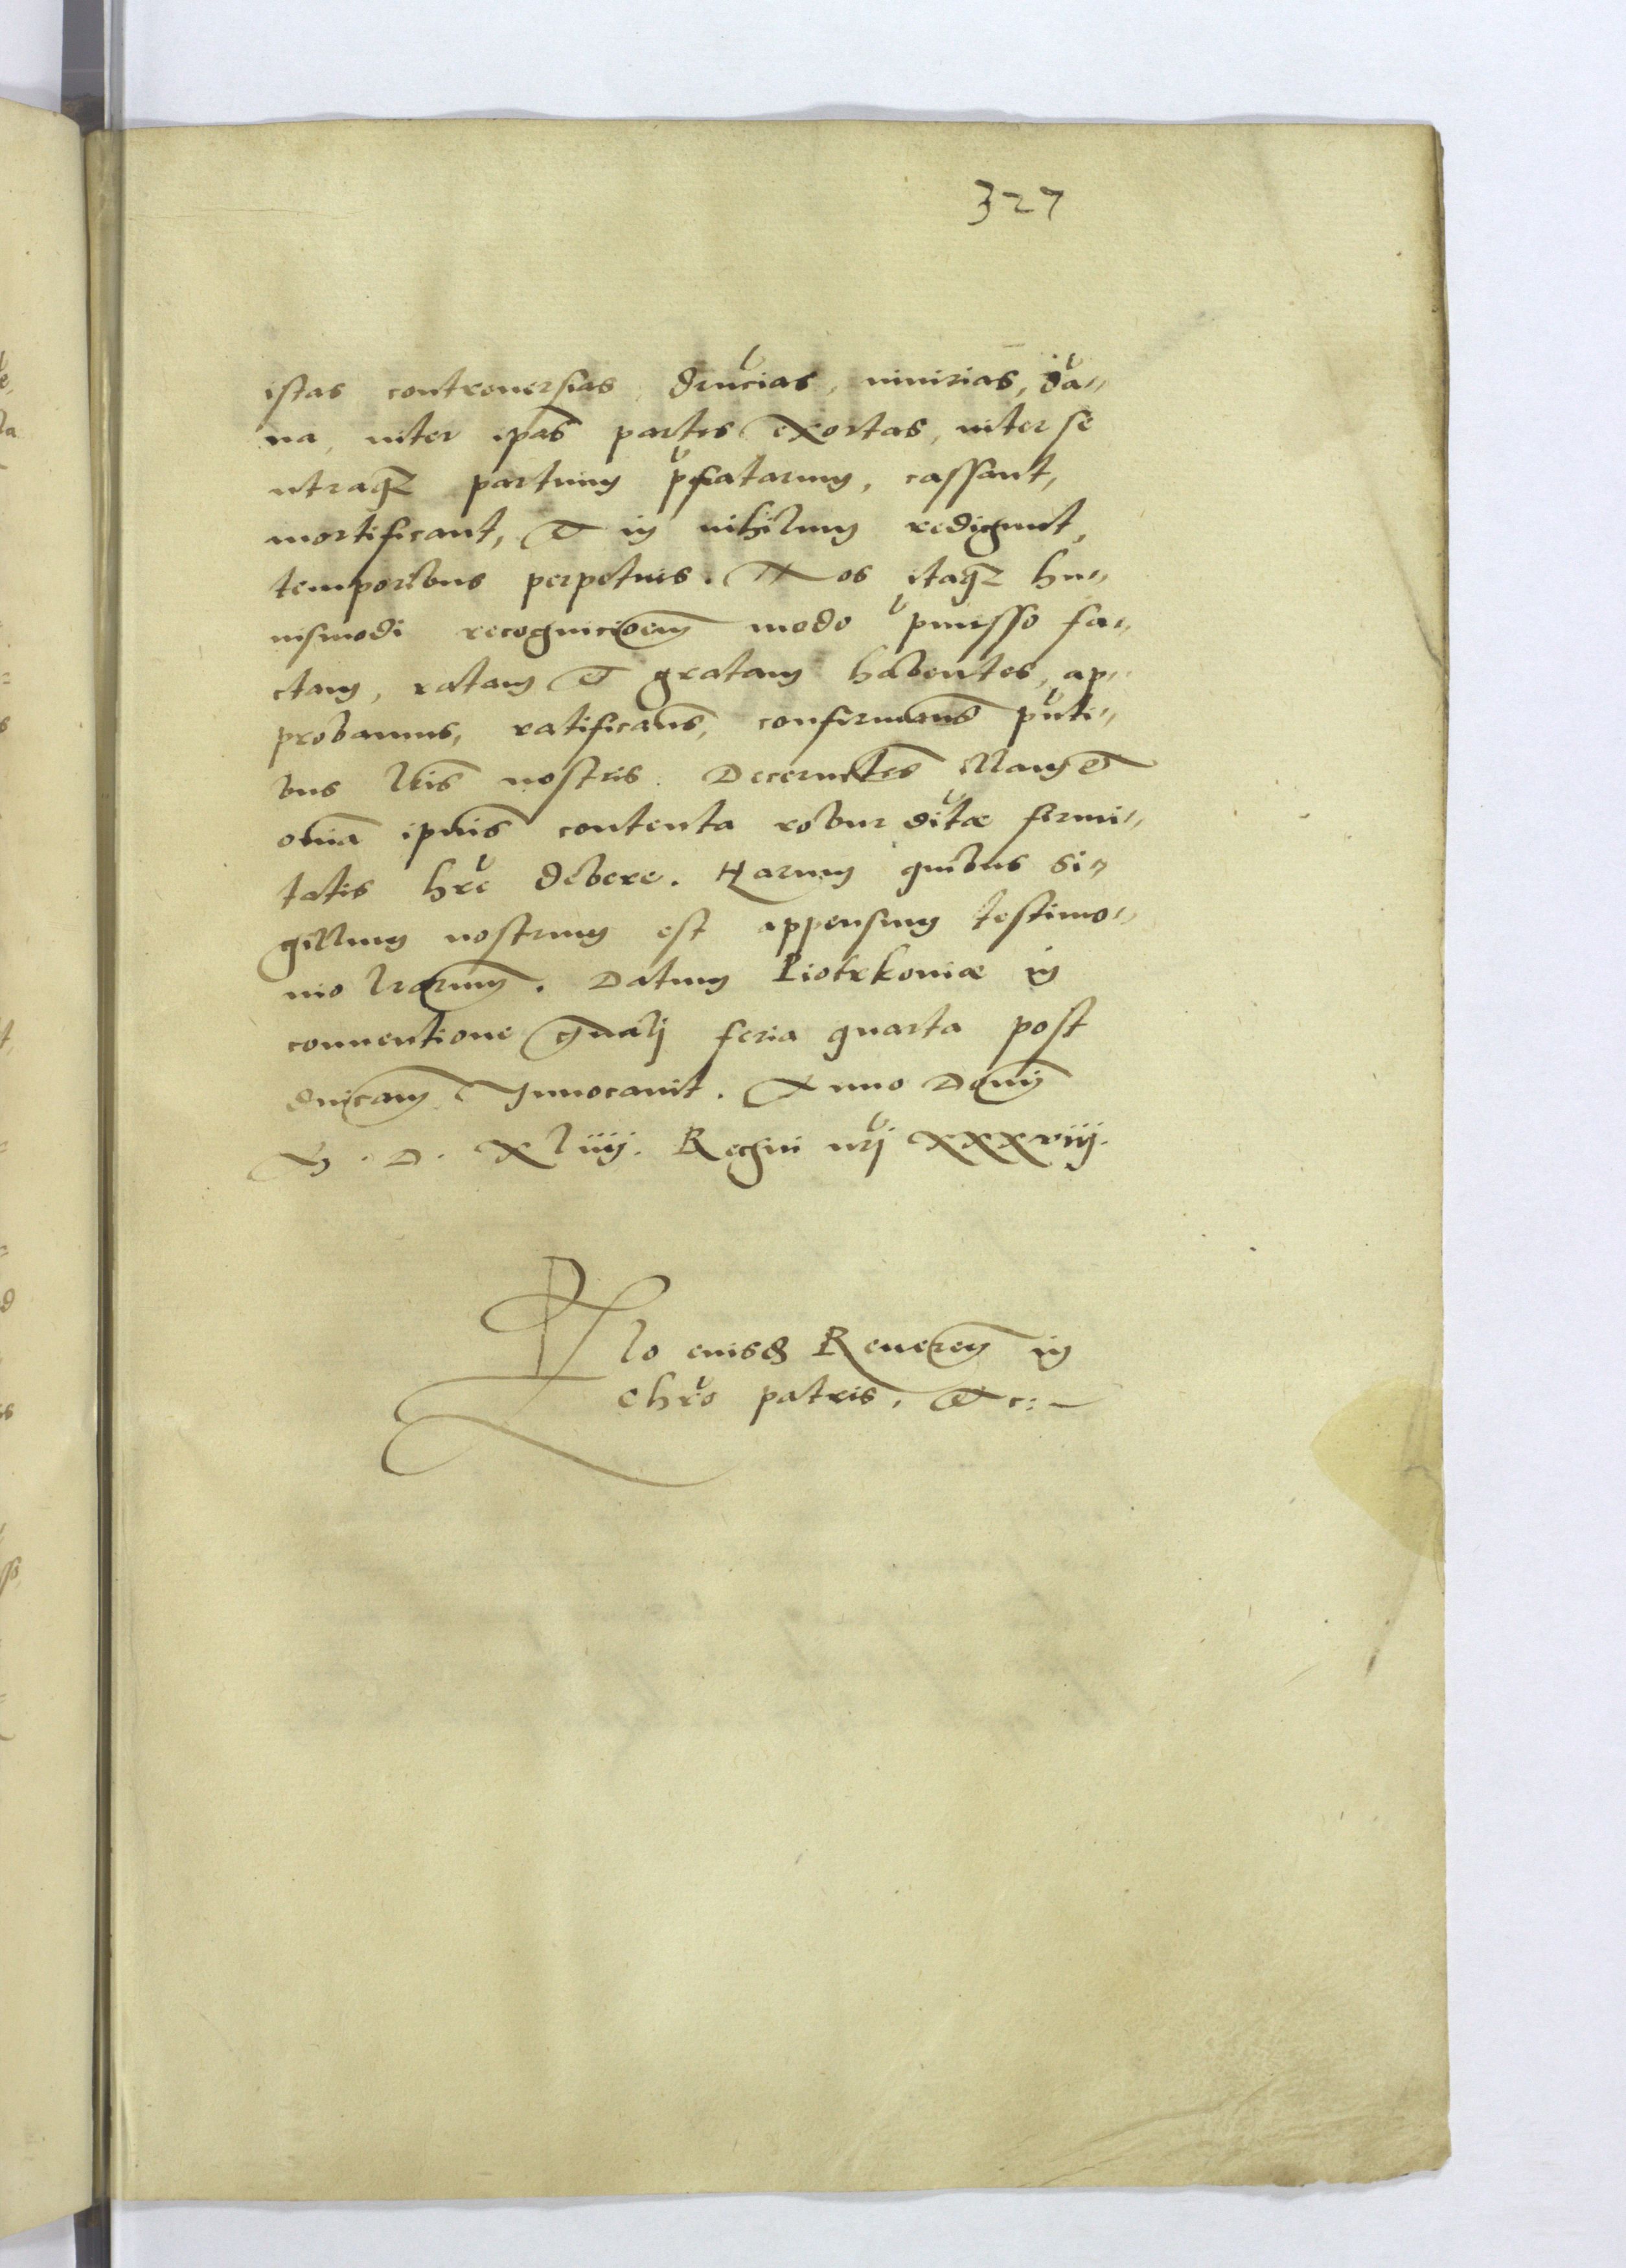 327
istas controuersias, dr̃ucias, iniurias, dã„
na, inter ip̃as partes exortas, inter se
utraq₃ partium p̃fatarum, cassant,
mortificant, et in nihilum redigunt,
temporibus perpetuis. Nos itaq₃ hu„
iusmodi recognic̃oem modo p̃misso fa„
ctam, ratam et gratam habentes, ap„
probamus, ratificam̃s, confirmam̃s p̃nti„
bus l̃ris nostris. Decernẽtes illam et
om̃ia ip̃nis contenta robur d̃itæ firmi„
tatis hr̃e debere. Harum quibus si„
gillum nostrum est appensum testimo„
nio l̃rarum. Datum Piotrkoniæ in
conuentione gñalj feria quarta post
dñicam Inuocauit. Anno Domij
M. D. Xliiij. Regni nr̃j XXXviij.
Rlo eiusd Reueren in
Chr̃o patris, Etc: